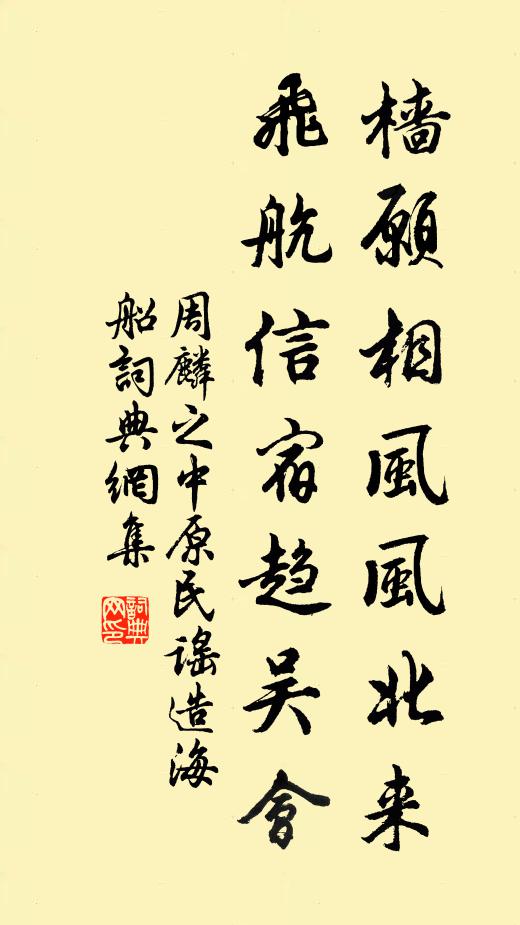 檣願相風風北来
飛航信宿趋吳會
周麟之中原民謠造海
船詞典網集
詞典網印